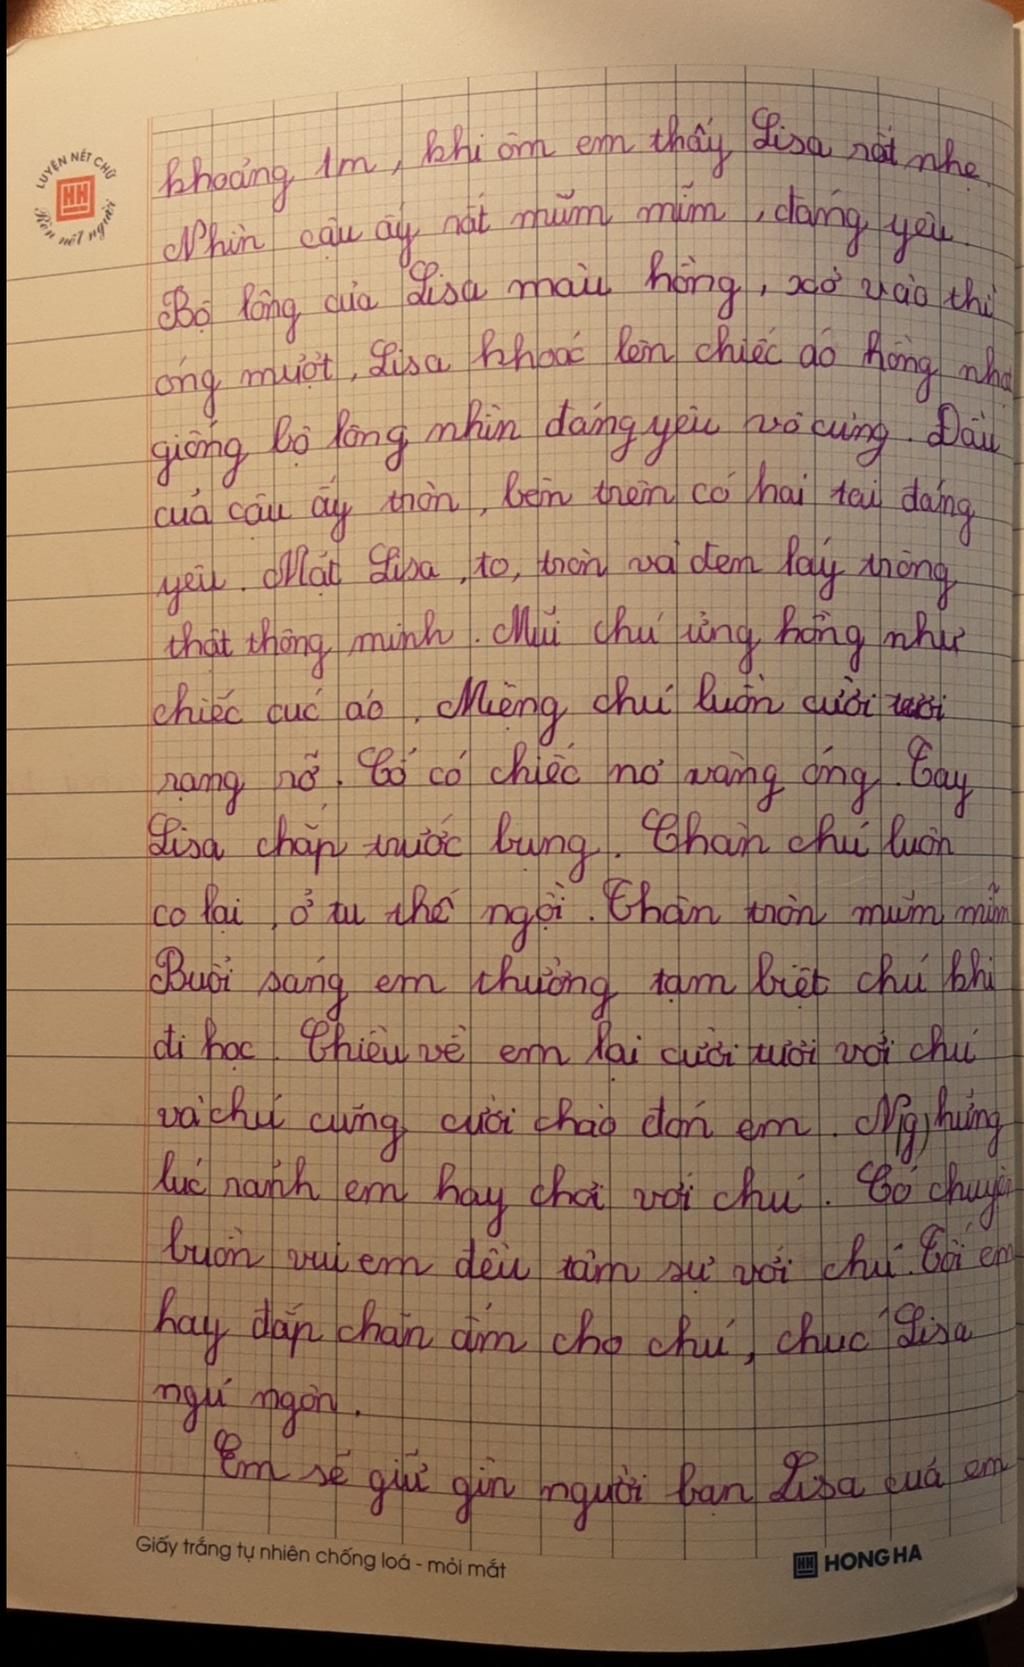 LUYỆN NÉT CHỮ
Rèn nết người
khoảng 1m, khi ôm em thấy Lisa rất nhẹ.
Nhìn cậu ấy rất mũm mĩm, đáng yêu.
Bộ lông của Lisa màu hồng, xờ vào thì
óng mượt, Lisa khoác lên chiếc áo hồng nhạ
giống bộ lông nhìn đáng yêu vô cùng. Đầu
của cậu ấy tròn, bên trên có hai tai đáng
yêu. Mắt Lisa, to, tròn và đen láy trông
thật thông minh. Mũi chú ửng hồng như
chiếc cúc áo. Miệng chú luôn cười tươi
rạng rỡ. Cổ có chiếc nơ vàng óng. Tay
Lisa chắp trước bụng. Chân chú luôn
co lại, ở tư thế ngồi. Thân tròn mũm mĩm
Buổi sáng em thường tạm biệt chú khi
đi học. Chiều về em lại cười tươi với chú
và chú cũng cười chào đón em. Những
lúc rảnh em hay chơi với chú. Có chuyện
buồn vui em đều tâm sự với chú. Tối em
hay đắp chăn ấm cho chú, chúc Lisa
ngủ ngon.
Em sẽ giữ gìn người bạn Lisa của em
Giấy trắng tự nhiên chống loá - mỏi mắt
HH HONG HA